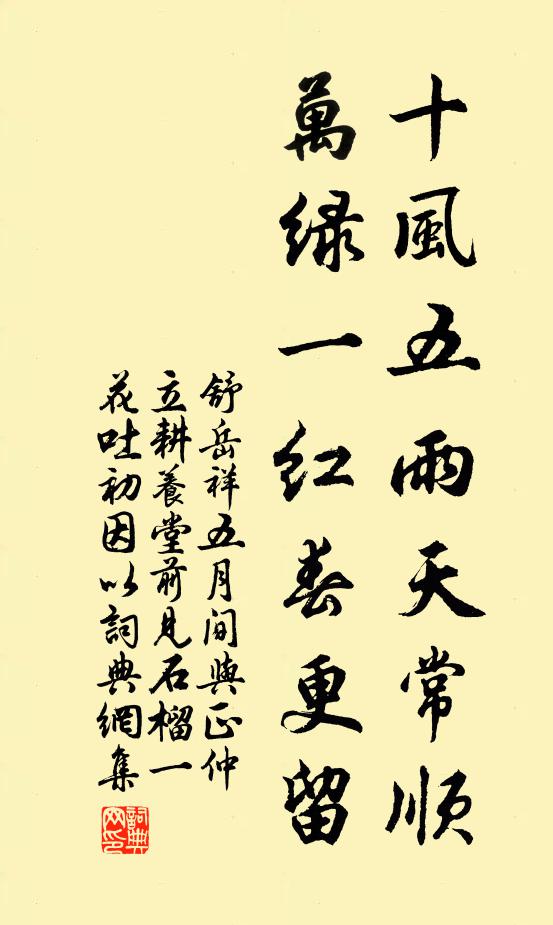 十風五雨天常順
萬綠一紅春更留
舒岳祥五月間與正仲
立耕養堂前見石榴一
花吐初因以詞典網集
詞典網印